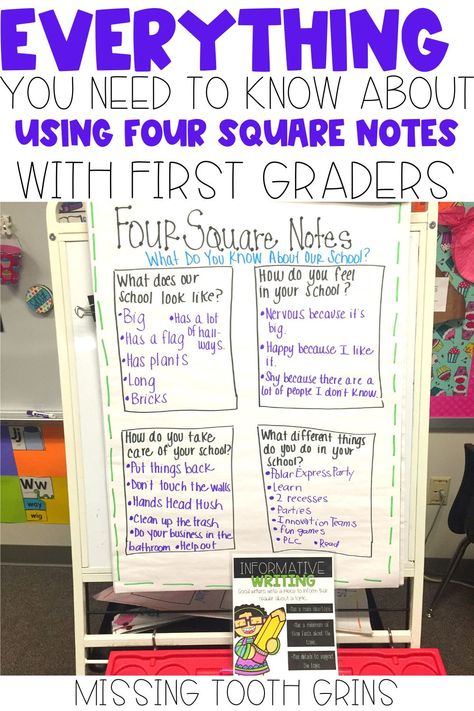 EVERYTHING
YOU NEED TO KNOW ABOUT
USING FOUR SQUARE NOTES
WITH FIRST GRADERS
Four Square Notes
What Do You Know About Our School?
What does our
school look like?
• Big
• Has a lot
of hall-
ways.
• Has a flag
• Has plants
• Long
• Bricks
How do you feel
in your school?
• Nervous because it's
big.
• Happy because I like
it.
• Shy because there are a
lot of people I don't know.
How do you take
care of your school?
• Put things back
• Don't touch the walls
• Hands Head Hush
• Clean up the trash
• Do your business in the
bathroom • Help out
What different things
do you do in your
school?
• Polar Express Party
• Learn
• 2 recesses
• Parties
• Innovation Teams
• fun games
• PLC • Read
Ww
wig
INFORMATIVE
WRITING
MISSING TOOTH GRINS